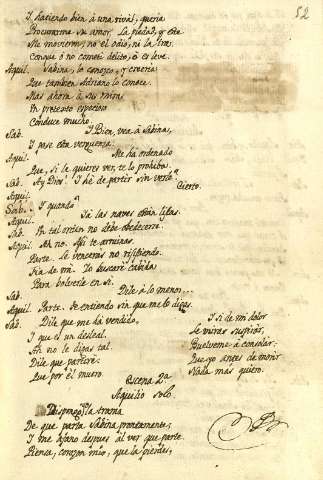 52
Y haciendo bien à una rival, queria
Procurarme su amor. La piedad, y este
Me movieron; no el odio, ni la ira:
Conque ò no cometì delito, ò es leve.
Aquil. Sabina, lo conozco, y creeria
Que tambien Adriano lo conoce.
Mas ahora à sus miras
Un pretexto especioso
Conduce mucho.
Sab. Y bien, vea à Sabina,
Y pase esta verguenza.
Aquil. Me ha ordenado
Que, si le quieres ver, te lo prohiba.
Sab. Ay, Dios! Y hè de partir sin verle?
Aquil. Cierto.
Sab. Y quando?
Aquil. Yà las naves están listas.
Sab. Un tal orden no debe obedecerse.
Aquil. Ah no. Asi te arruinas.
Parte. Le venceràs no resistiendo.
Fia de mi. Yo buscarè cabida
Para bolverle en sì.
Sab. Dile à lo menor...
Aquil. Parte. Te entiendo sin que me lo digas.
Sab. Dile que me dà vendido,
Y que es un desleal.
Ah no le digas tal.
Dile que partirè:
Que por el muero.
Y si de mi dolor
Le mirás suspirar,
Buelveme à consolar:
Que yo antes de morir
Nada mas quiero.
Escena 2ª
Aquilio solo
la trama
De que parta Sabina prontamente;
Y me afano despues al ver que parte.
Piensa, corazon mio, que la pierdes,